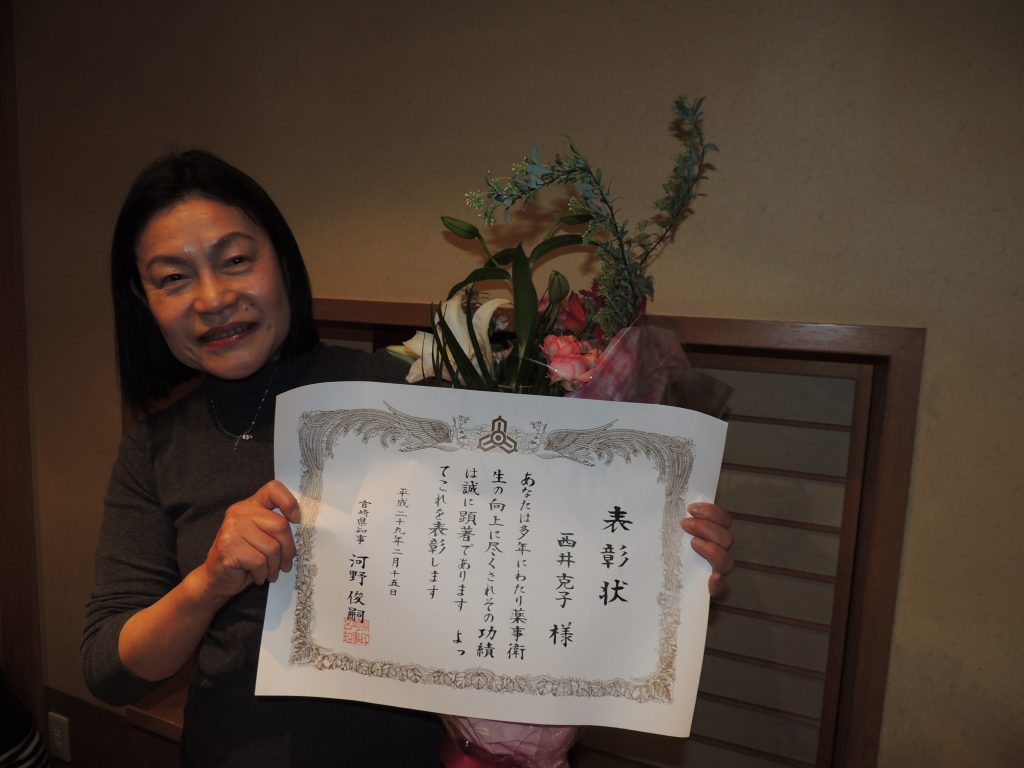 表彰状
西井克子 様
あなたは多年にわたり薬事衛
生の向上に尽くされその功績
は誠に顕著であります よっ
てこれを表彰します
平成二十九年二月十五日
宮崎県知事 河野俊嗣